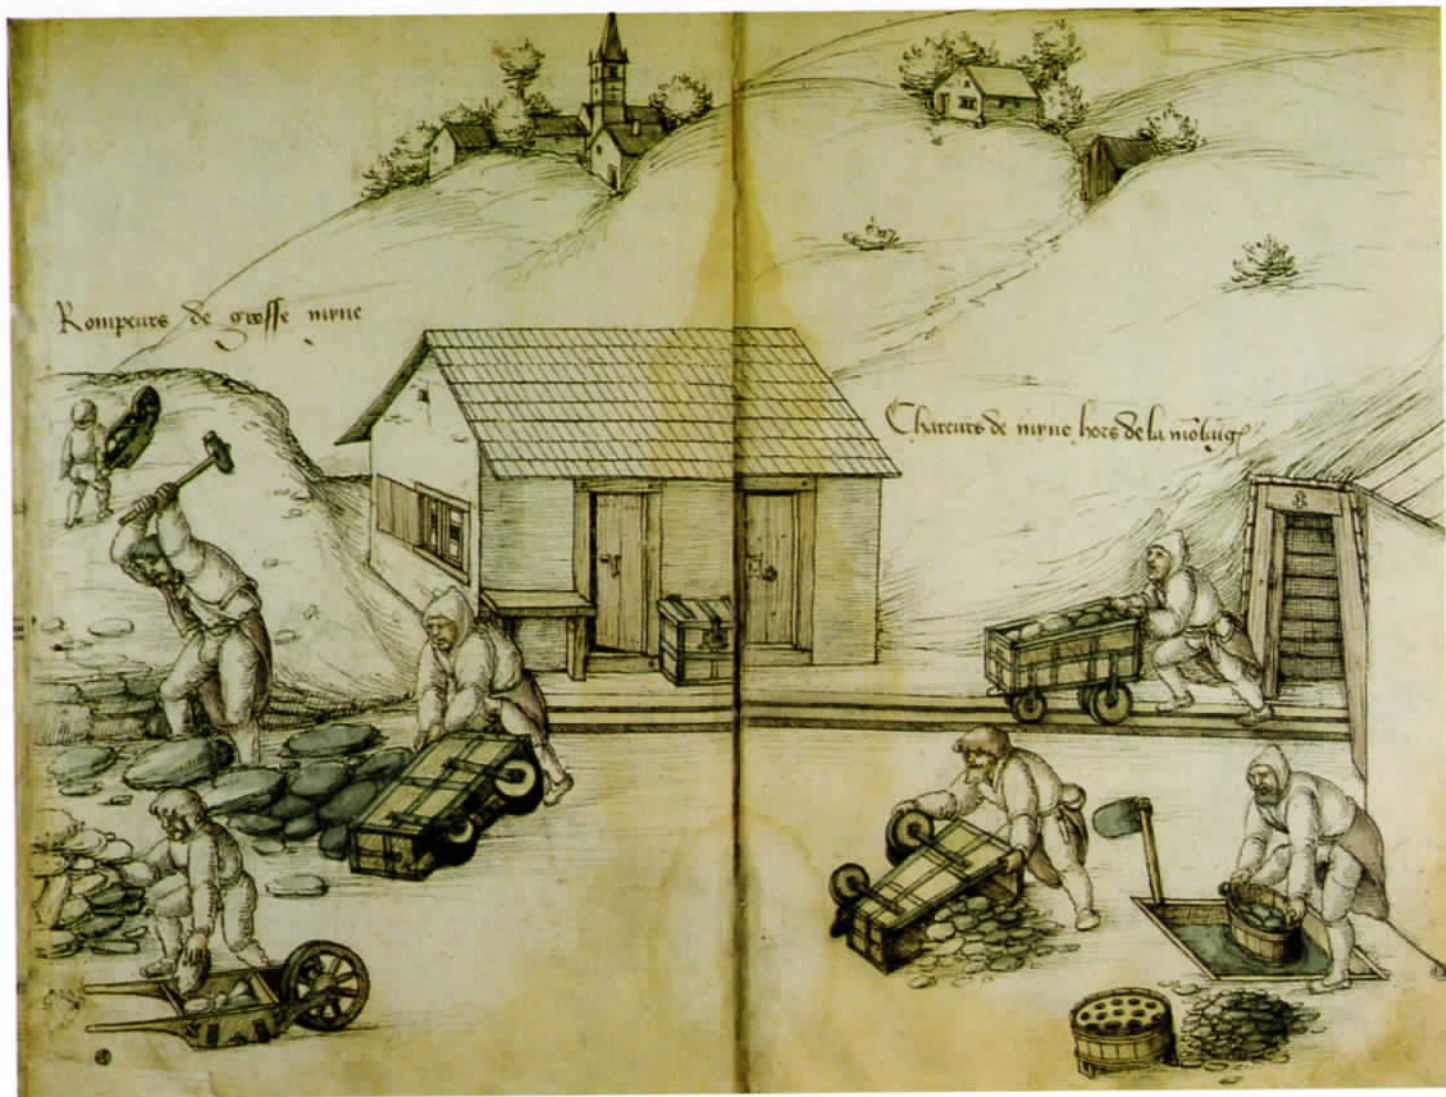 Rompeurs de grosse myne
Chareurs de myne hors de la